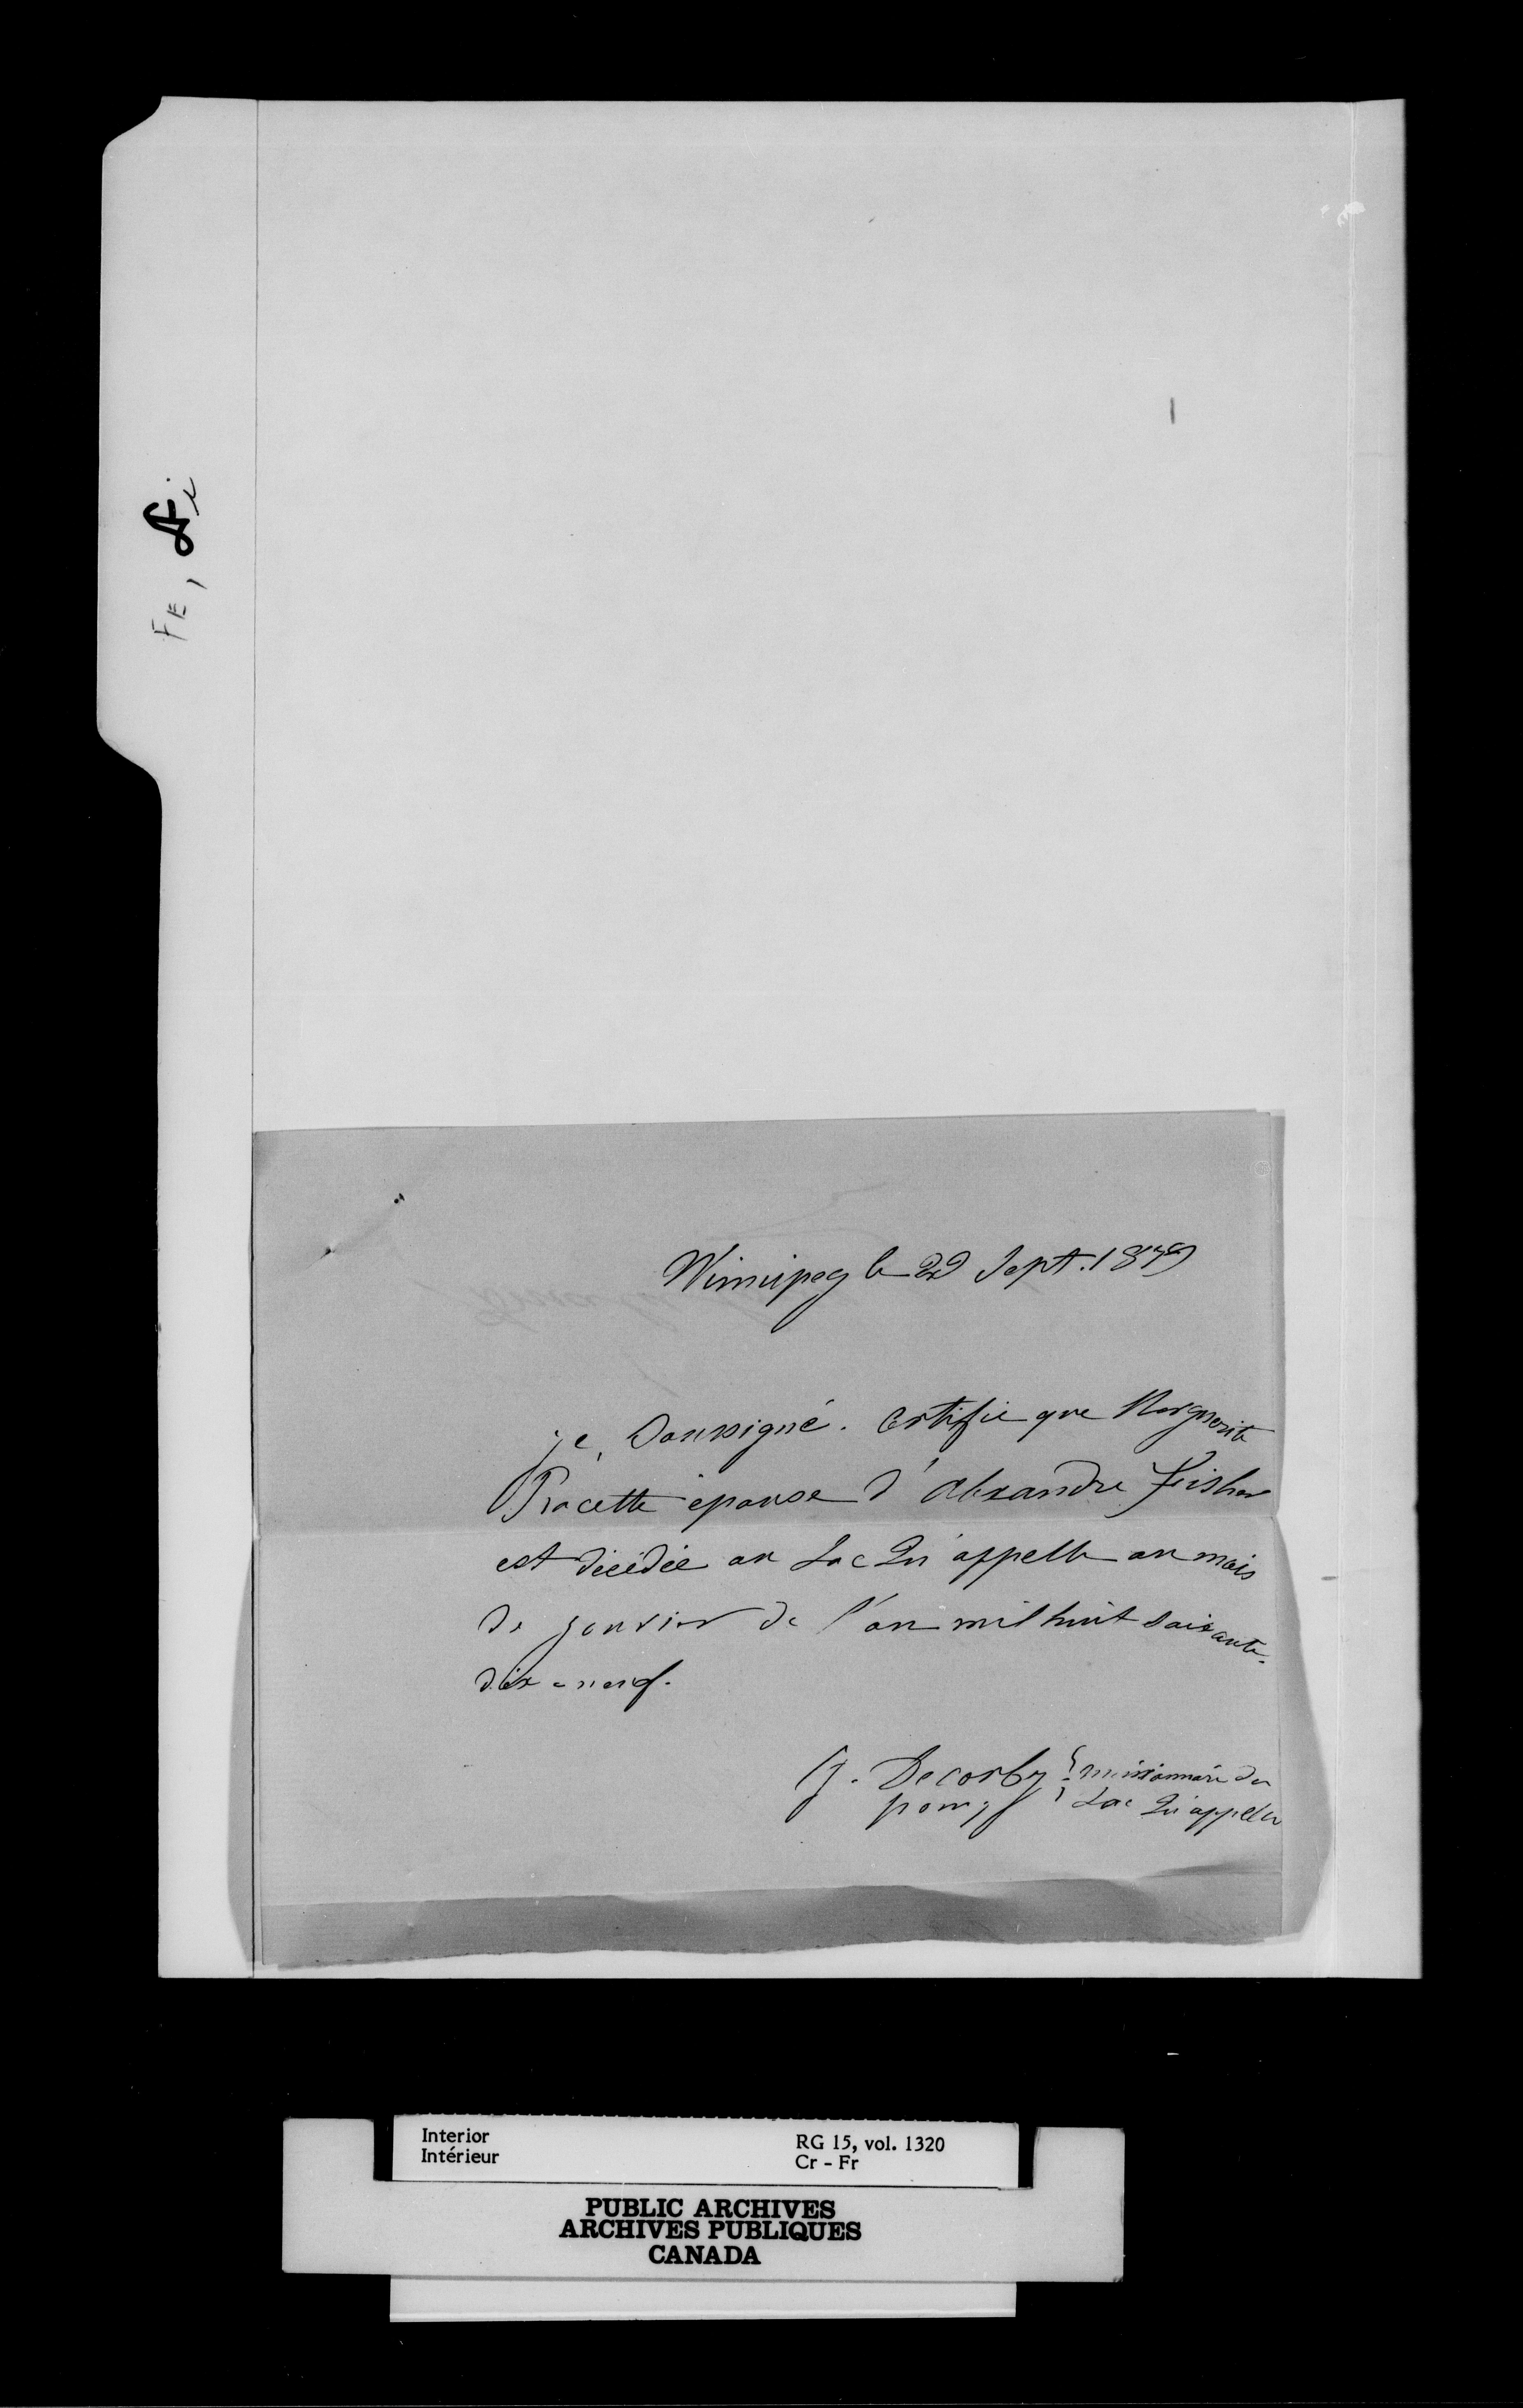 Fe, Fi
Winnipeg le 29 Sept. 1879
je, Soussigné. Certifie que Marguerite
Racette épouse d'Alexandre Fisher
est décédée au Lac Qu'appelle au mois
de janvier de l'an mil huit soixante-
dix-neuf.
J. Decorby missionnaire du
Lac Qu'appelle
Interior RG 15, vol. 1320
Intérieur Cr - Fr
PUBLIC ARCHIVES
ARCHIVES PUBLIQUES
CANADA